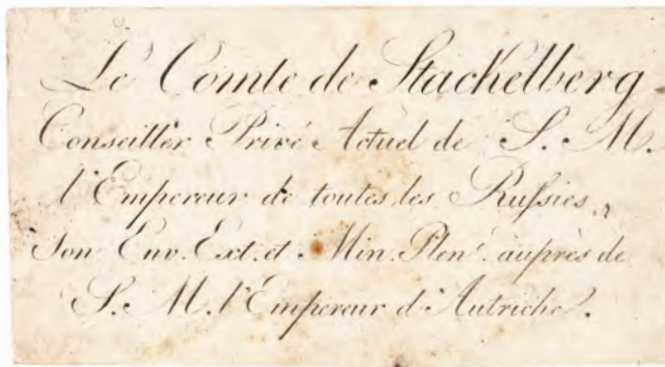 Le Comte de Stackelberg
Conseiller Privé Actuel de S. M.
l'Empereur de toutes les Russies,
Son Env. Ext. et Min. Plen. auprès de
S. M. l'Empereur d'Autriche.